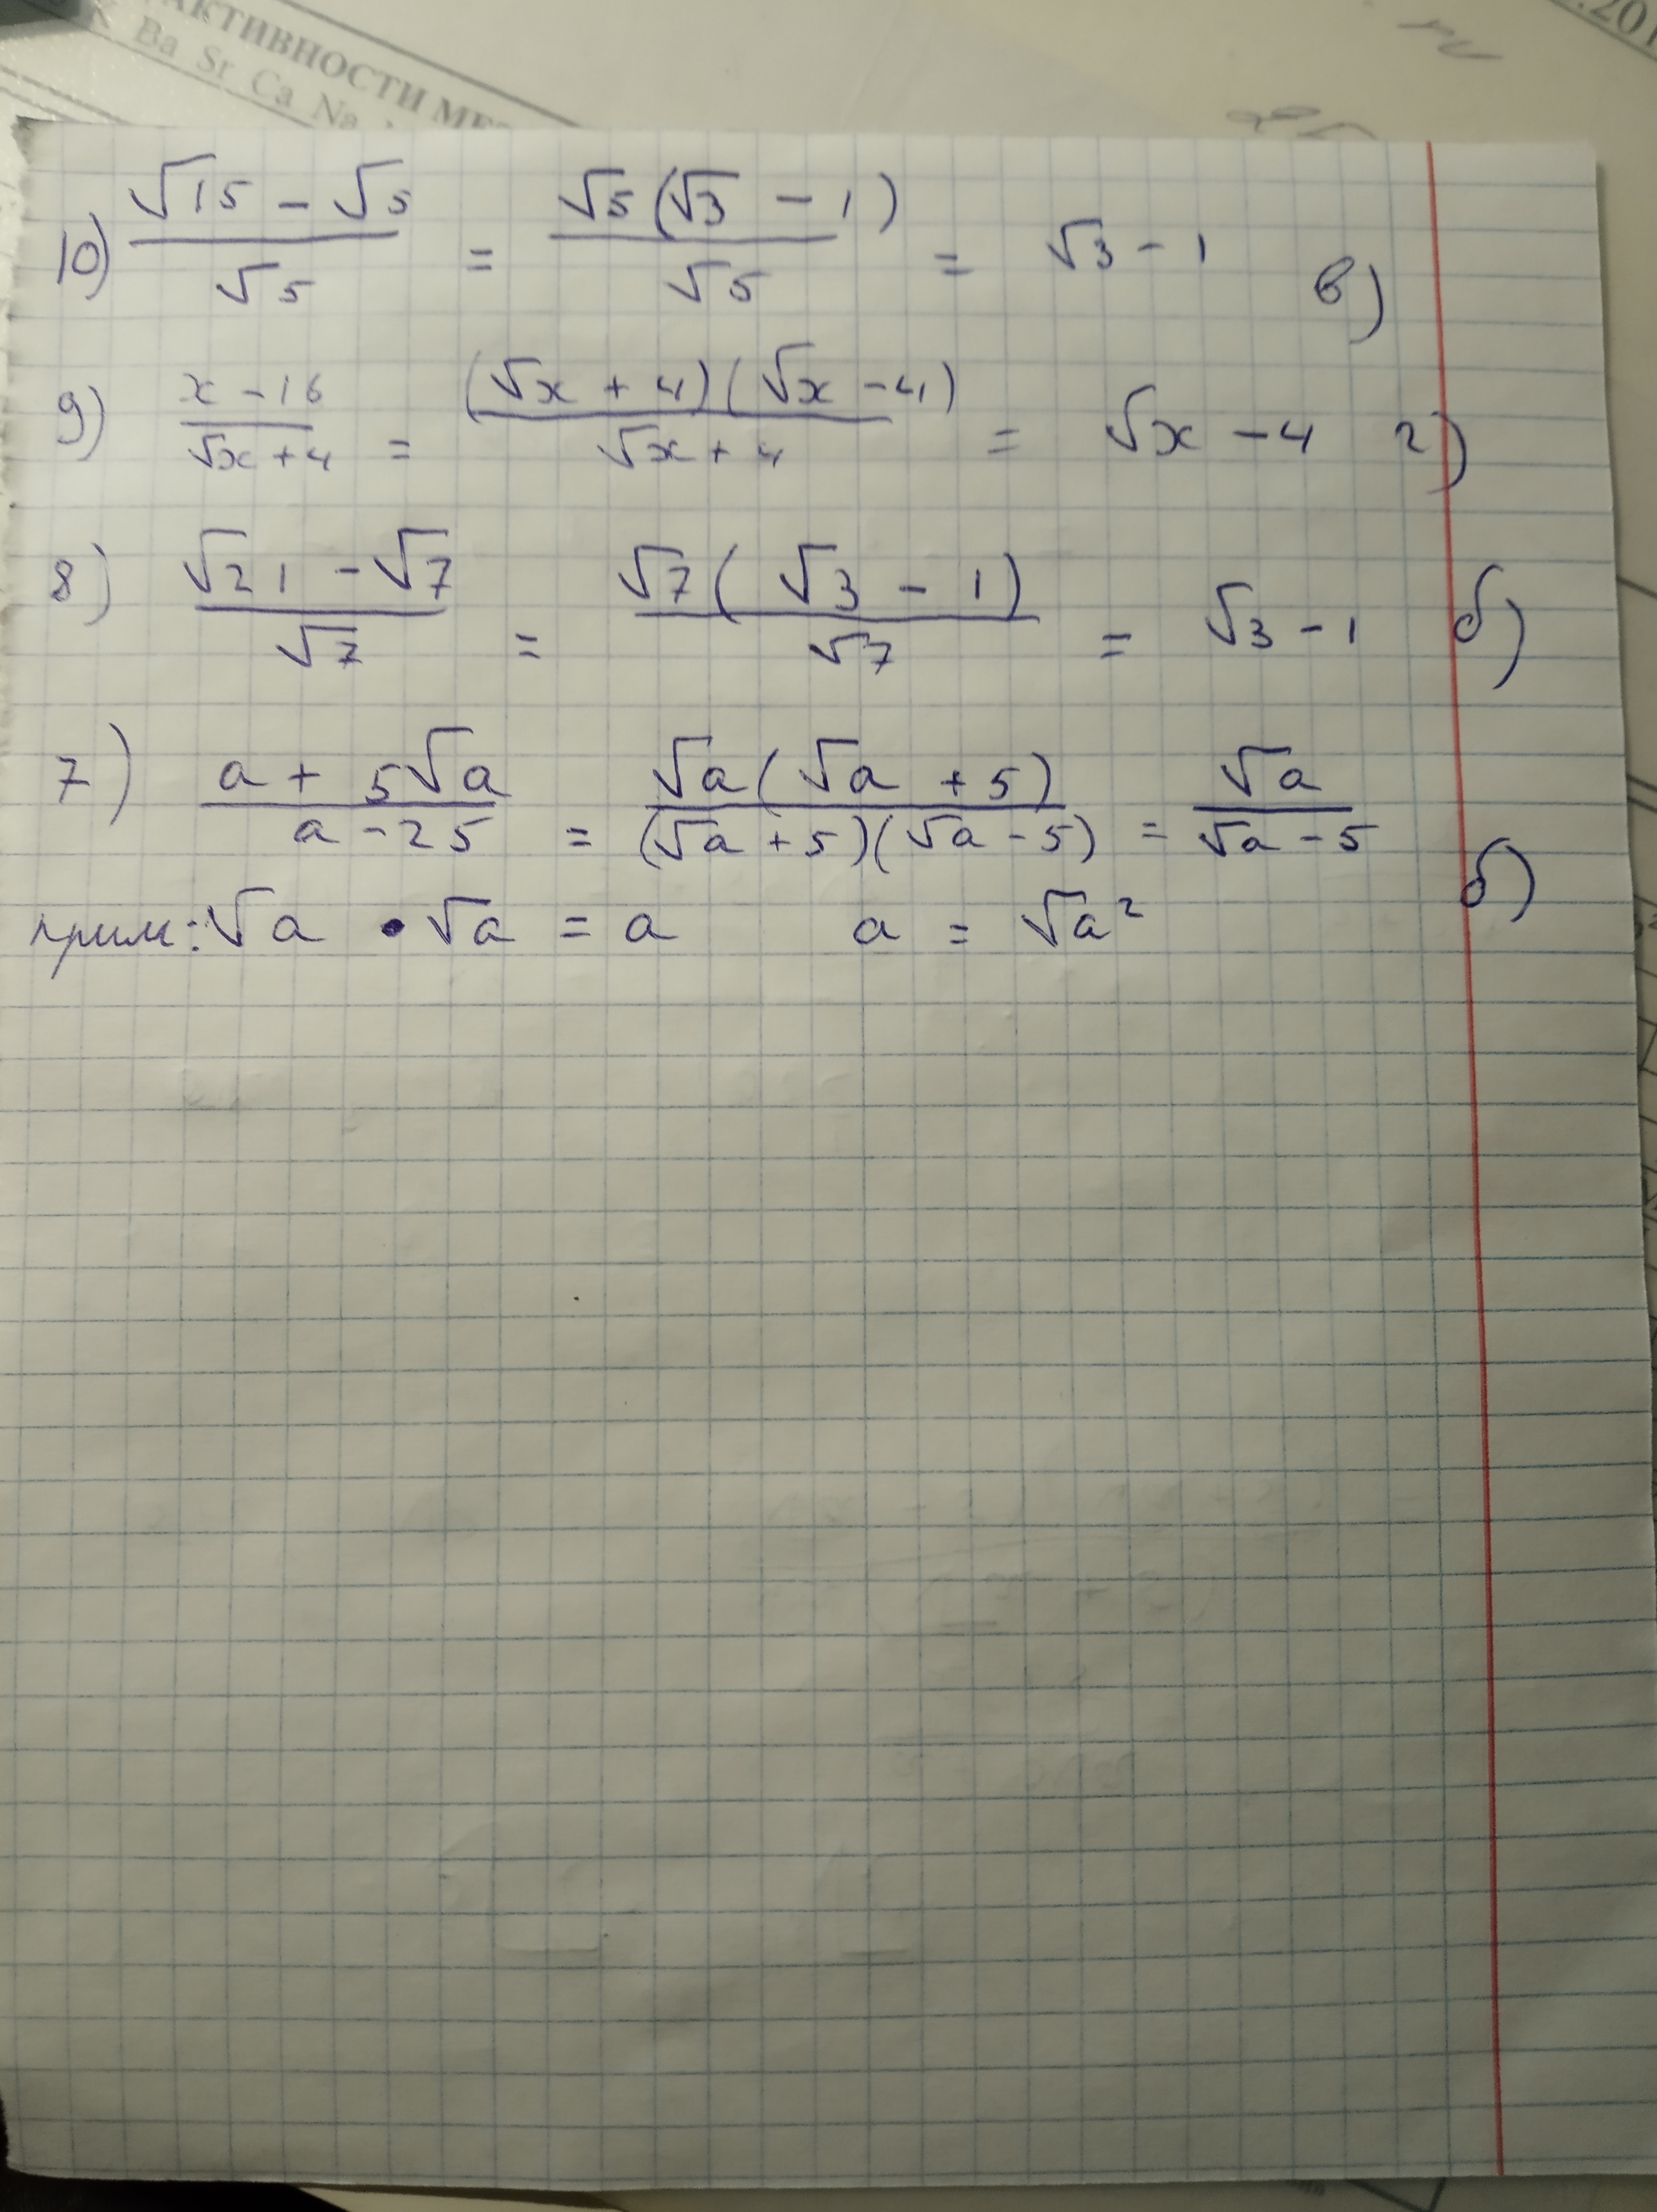 АКТИВНОСТИ МЕ
K Ba Sr Ca Na
.201
10) (√15 - √5)/√5 = √5(√3 - 1)/√5 = √3 - 1 в)
9) (x - 16)/(√x + 4) = (√x + 4)(√x - 4)/(√x + 4) = √x - 4 г)
8) (√21 - √7)/√7 = √7(√3 - 1)/√7 = √3 - 1 б)
7) (a + 5√a)/(a - 25) = √a(√a + 5)/((√a + 5)(√a - 5)) = √a/(√a - 5) б)
прим: √a • √a = a a = √a²